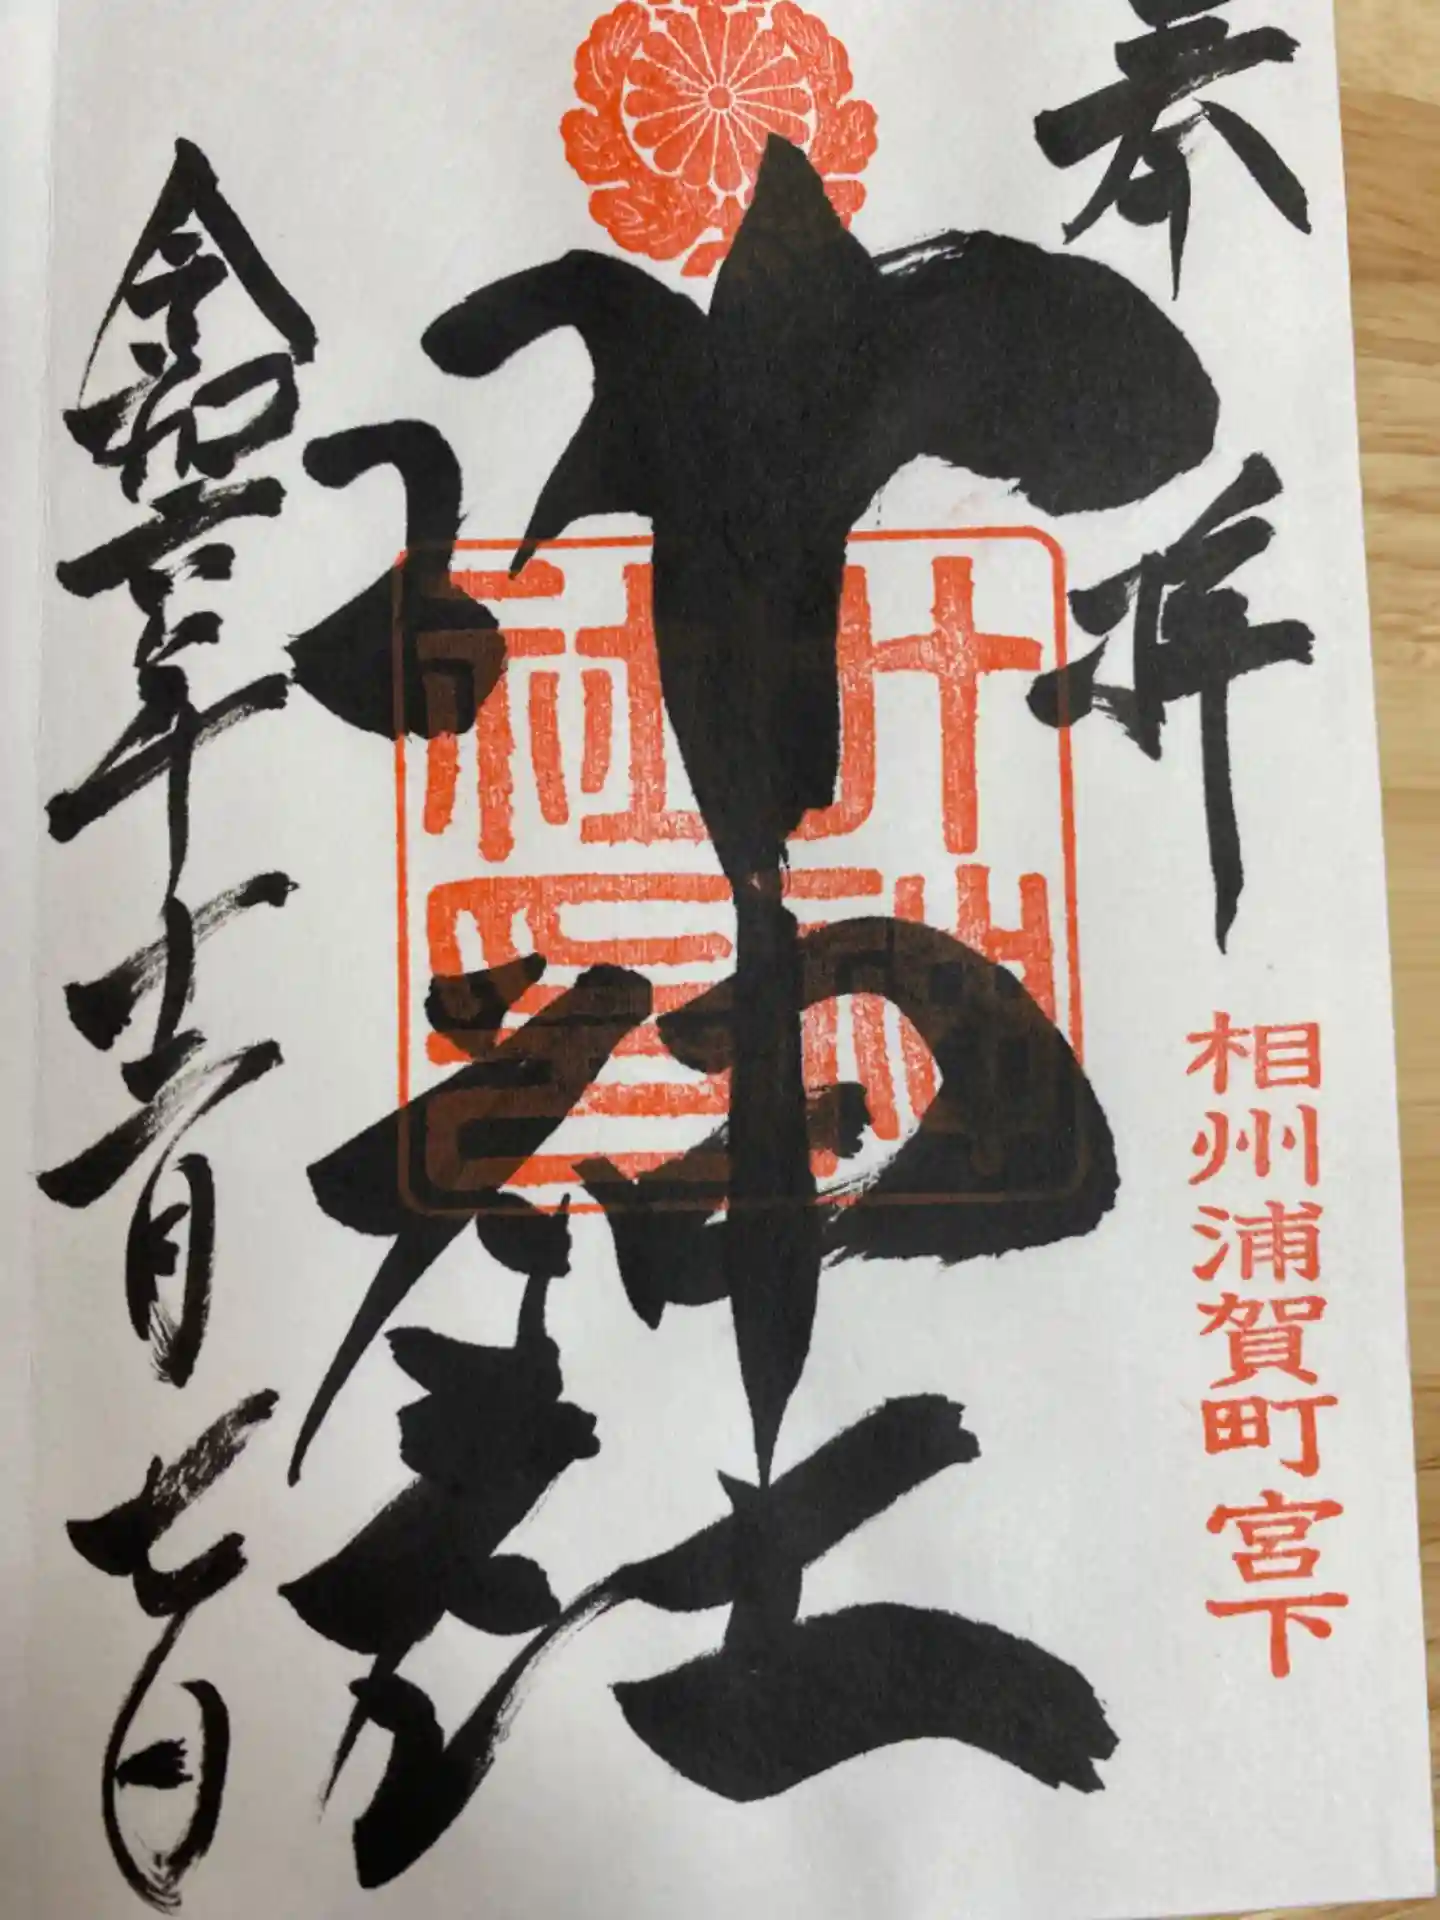 奉拝
相州浦賀町宮下
叶神社
叶神社印
令和
年
月七日